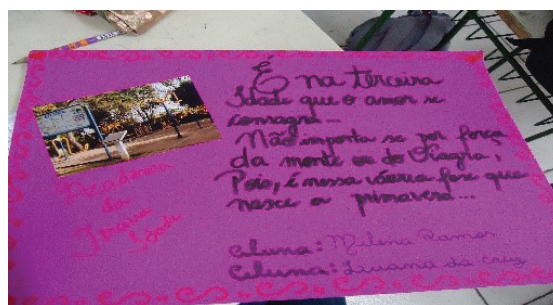 É na terceira
Idade que o amor se
consagra...
Não importa se por força
da mente ou do Viagra,
Pois, é nessa vária fase que
nasce a primavera...
Academia
da
Terceira
Idade
Aluna: Milena Ramos
Aluna: Luana da Cruz